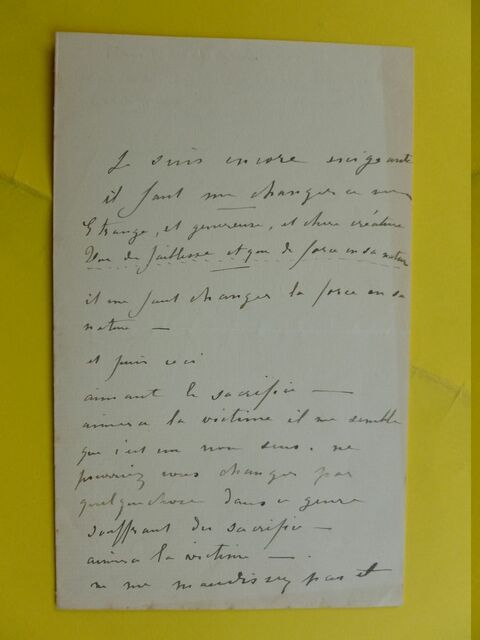 Je suis encore exigeante
il faut me changer ce vers
Etrange, et genereuse, et chere créature
de faiblesse et que de force en sa nature
il me faut changer la force en sa
nature —
et puis ceci
aimant le sacrifice —
aimera la victime il me semble
que c'est un non sens. ne
pourriez vous changer par
quelque chose dans ce genre
souffrant du sacrifice —
aimera la victime — .
ne me maudissez pas et